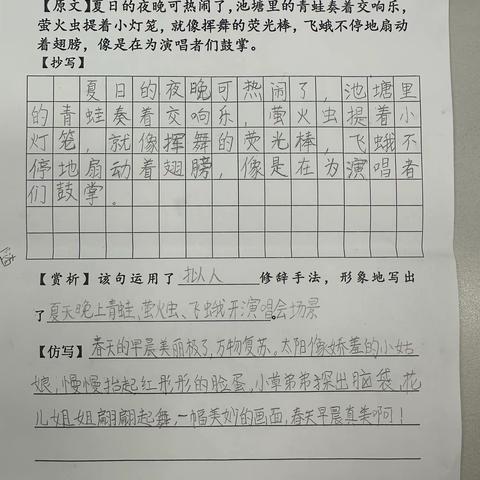 【原文】夏日的夜晚可热闹了,池塘里的青蛙奏着交响乐,
萤火虫提着小灯笼,就像挥舞的荧光棒,飞蛾不停地扇动
着翅膀,像是在为演唱者们鼓掌。
【抄写】
夏日的夜晚可热闹了,池塘里
的青蛙奏着交响乐,萤火虫提着小
灯笼,就像挥舞的荧光棒,飞蛾不
停地扇动着翅膀,像是在为演唱者
们鼓掌。
【赏析】该句运用了 拟人 修辞手法,形象地写出
了夏天晚上青蛙、萤火虫、飞蛾开演唱会场景。
【仿写】春天的早晨美丽极了,万物复苏。太阳像娇羞的小姑
娘,慢慢抬起红彤彤的脸蛋,小草弟弟探出脑袋,花
儿姐姐翩翩起舞,一幅美妙的画面,春天早晨真美啊!